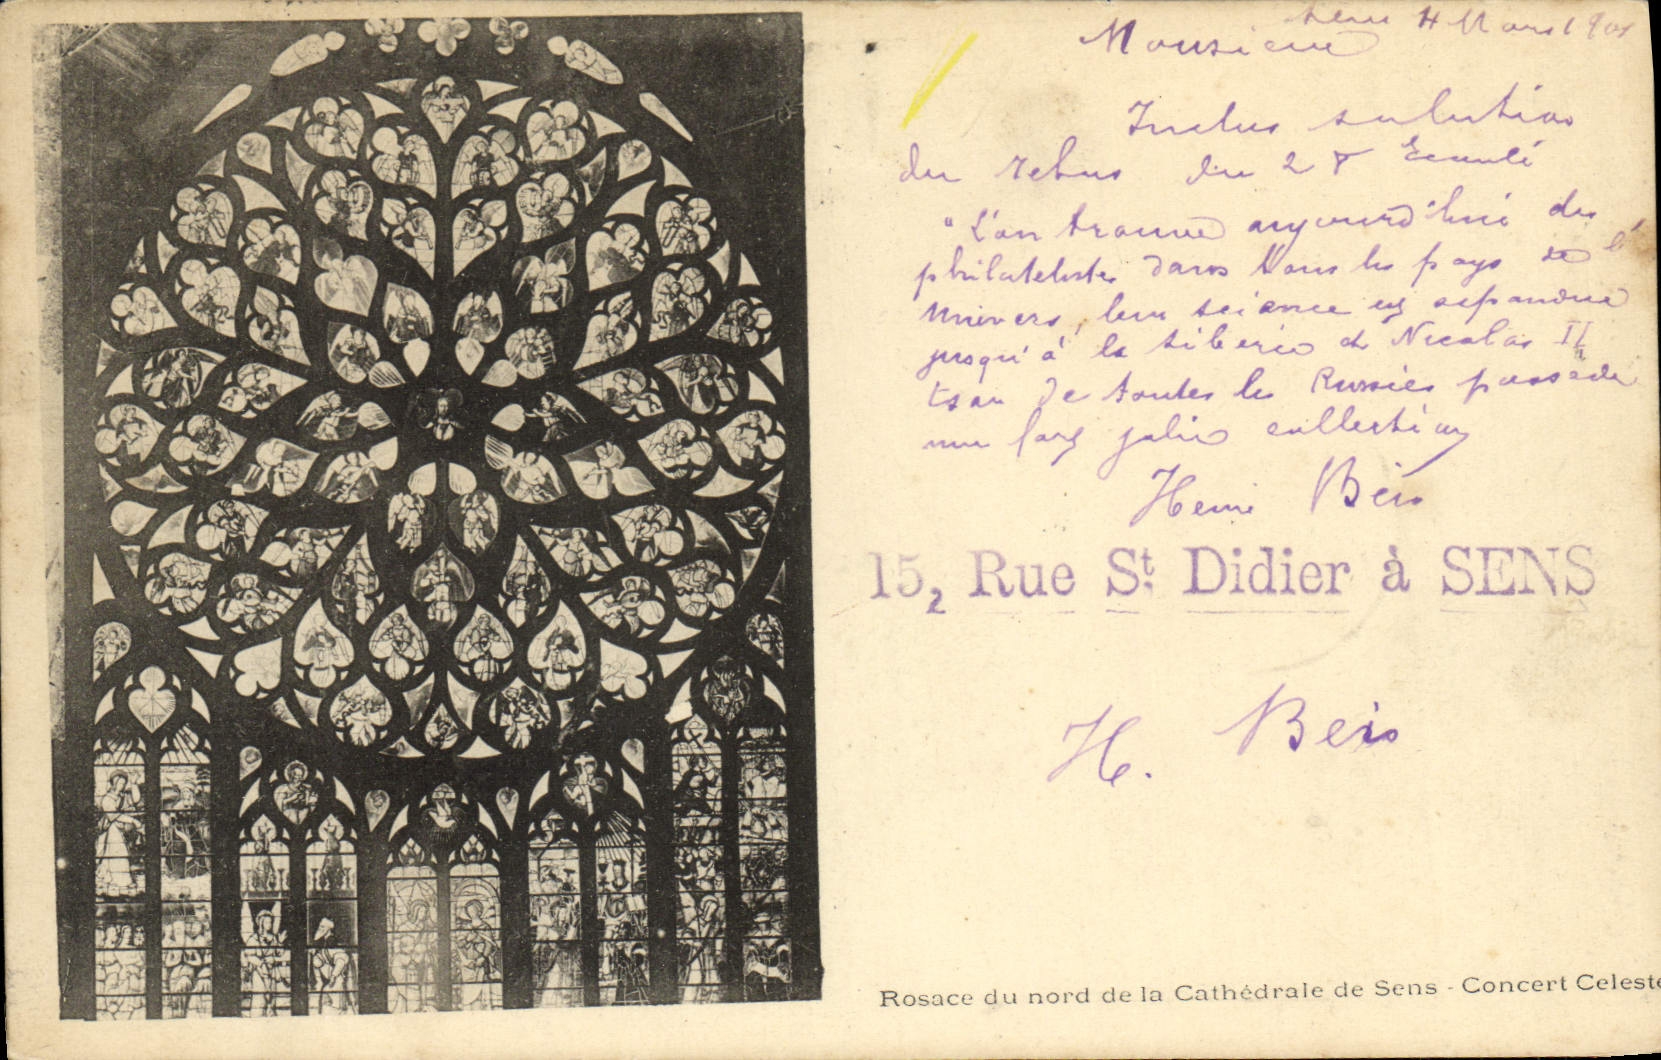 Sens 4 Mars 1901
Monsieur
Inclus solution
du rebus du 28 Ecoulé
"L'on trouve aujourd'hui des
philatelistes dans tous les pays de l'
Univers, leur science est repandue
jusqu'à la Siberie et Nicolas II
tsar de toutes les Russies possede
une fort jolie collection
Henri Beis
15, Rue St. Didier à SENS
H. Beis
Rosace du nord de la Cathédrale de Sens - Concert Celeste